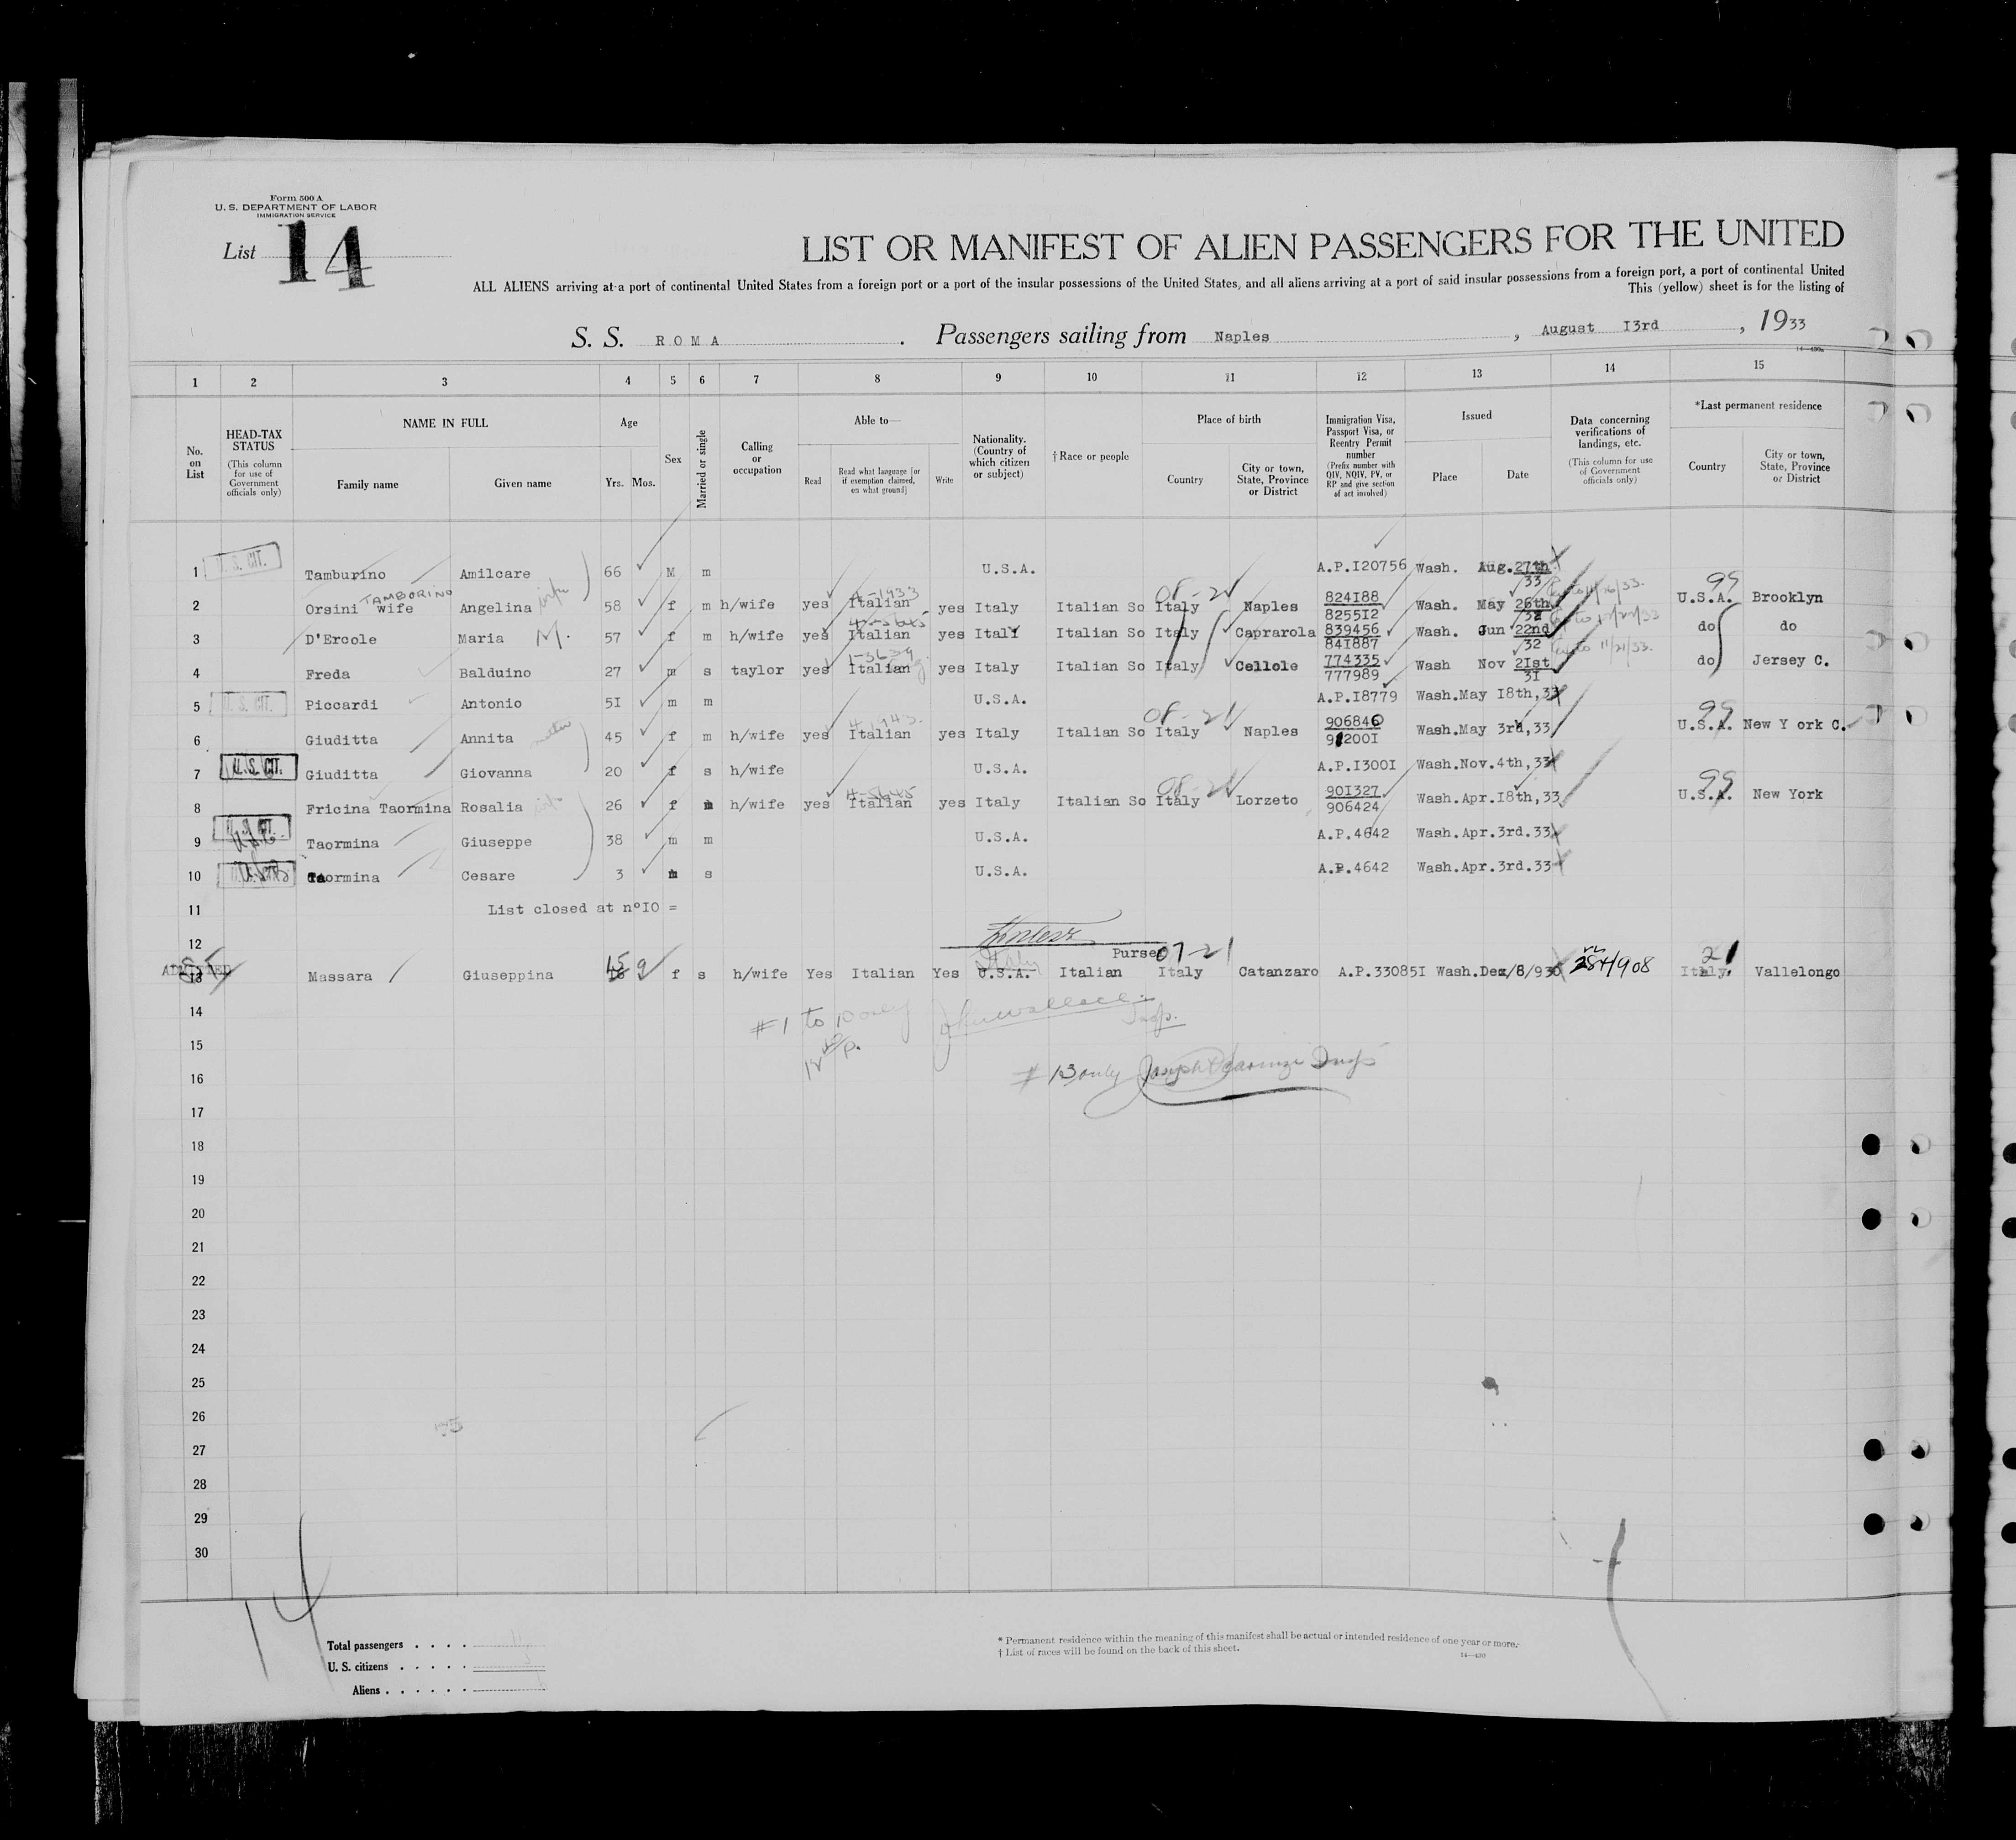 Form 500 A
U. S. DEPARTMENT OF LABOR
IMMIGRATION SERVICE
List 14
LIST OR MANIFEST OF ALIEN PASSENGERS FOR THE UNITED
ALL ALIENS arriving at a port of continental United States from a foreign port or a port of the insular possessions of the United States, and all aliens arriving at a port of said insular possessions from a foreign port, a port of continental United
This (yellow) sheet is for the listing of
S. S. ROMA . Passengers sailing from Naples , August I3rd , 1933
1 2 3 4 5 6 7 8 9 10 11 12 13 14 15
No. on List
HEAD-TAX STATUS
(This column for use of Government officials only)
NAME IN FULL
Family name Given name
Age
Yrs. Mos.
Sex
Married or single
Calling or occupation
Able to—
Read
Read what language [or if exemption claimed, on what ground]
Write
Nationality. (Country of which citizen or subject)
†Race or people
Place of birth
Country
City or town, State, Province or District
Immigration Visa, Passport Visa, or Reentry Permit number
(Prefix number with QIV, NQIV, PV, or RP and give section of act involved)
Issued
Place Date
Data concerning verifications of landings, etc.
(This column for use of Government officials only)
*Last permanent residence
Country
City or town, State, Province or District
1 U. S. CIT. Tamburino Amilcare 66 M m U.S.A. A.P.I20756 Wash. Aug.27th 33
TAMBORINO
2 Orsini wife Angelina wife 58 f m h/wife yes Italian yes Italy Italian So Italy Naples 824I88 8255I2 Wash. May 26th 32 U.S.A. Brooklyn
3 D'Ercole Maria M. 57 f m h/wife yes Italian yes Italy Italian So Italy Caprarola 839456 84I887 Wash. Jun 22nd 32 do do
4 Freda Balduino 27 m s taylor yes Italian yes Italy Italian So Italy Cellole 774335 777989 Wash Nov 2Ist 3I do Jersey C.
5 U. S. CIT. Piccardi Antonio 5I m m U.S.A. A.P.I8779 Wash.May I8th,33
6 Giuditta Annita 45 f m h/wife yes Italian yes Italy Italian So Italy Naples 906846 91200I Wash.May 3rd,33 U.S.A. New Y ork C.
7 U. S. CIT. Giuditta Giovanna 20 f s h/wife U.S.A. A.P.I300I Wash.Nov.4th,33
8 Fricina Taormina Rosalia 26 f m h/wife yes Italian yes Italy Italian So Italy Lorzeto 90I327 906424 Wash.Apr.I8th,33 U.S.A. New York
9 U. S. CIT. Taormina Giuseppe 38 m m U.S.A. A.P.4642 Wash.Apr.3rd.33
10 Taormina Cesare 3 m s U.S.A. A.P.4642 Wash.Apr.3rd.33
11 List closed at nºIO =
12
Purser
07-21
13 ADMITTED Massara Giuseppina 15 9 f s h/wife Yes Italian Yes U.S.A. Italy Italian Italy Catanzaro A.P.33085I Wash.Dec/8/930 Italy. Vallelongo
14
#1 to 10 only John Wallace Insp.
15
16
# 13 only Joseph
17
18
19
20
21
22
23
24
25
26
27
28
29
30
14
Total passengers . . . .
U. S. citizens . . . . .
Aliens . . . . . .
* Permanent residence within the meaning of this manifest shall be actual or intended residence of one year or more.
† List of races will be found on the back of this sheet.
14—430